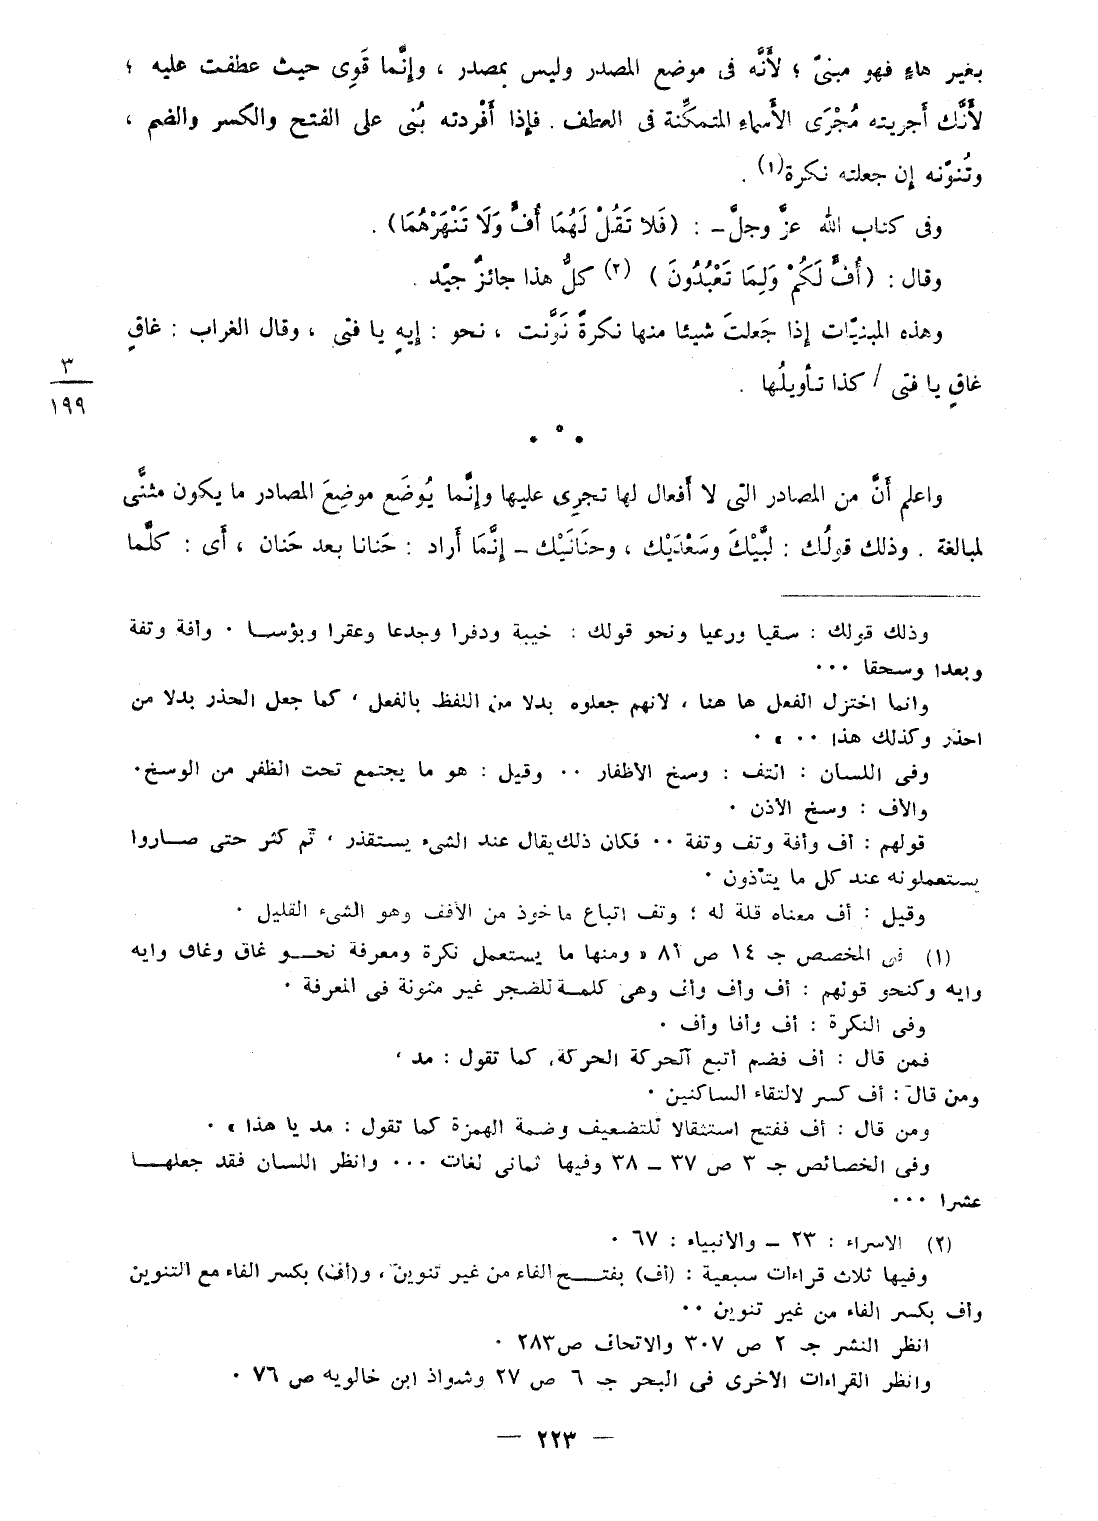 بغير هاءٍ فهو مبنىّ ؛ لأَنَّه فى موضع المصدر وليس بمصدر ، وإنَّما قَوِى حيث عطفت عليه ؛
لأَنَّك أَجريته مُجْرَى الأَسماءِ المتمكِّنة فى العطف . فإذا أَفْردته بُنى على الفتح والكسر والضم ،
وتُنوّنه إن جعلته نكرة(١) .
وفى كتاب الله عزَّ وجلَّ – : (فَلا تَقُلْ لَهُمَا أُفٍّ وَلَا تَنْهَرْهُمَا) .
وقال : (أُفٍّ لَكُمْ وَلِمَا تَعْبُدُونَ) (٢) كلُّ هذا جائزٌ جيّد .
وهذه المبنيّات إذا جَعلتَ شيئا منها نكرةً نَوَّنت ، نحو : إيهٍ يا فتى ، وقال الغراب : غاقٍ
غاقٍ يا فتى / كذا تأويلُها .
٣
١٩٩
واعلم أَنَّ من المصادر التى لا أَفعال لها تجرِى عليها وإنَّما يُوضَع موضِعَ المصادر ما يكون مثنَّى
لمبالغة . وذلك قولُك : لبَّيْكَ وسَعْدَيْك ، وحنَانَيْك – إنَّمَا أَراد : حَنانا بعد حَنان ، أَى : كلَّما
وذلك قولك : سقيا ورعيا ونحو قولك : خيبة ودفرا وجدعا وعقرا وبؤسا . وأفة وتفة
وبعدا وسحقا ...
وانما اختزل الفعل ها هنا ، لانهم جعلوه بدلا من اللفظ بالفعل ، كما جعل الحذر بدلا من
احذر وكذلك هذا .. » .
وفى اللسان : التف : وسخ الأظفار .. وقيل : هو ما يجتمع تحت الظفر من الوسخ.
والأف : وسخ الأذن .
قولهم : أف وأفة وتف وتفة .. فكان ذلك يقال عند الشىء يستقذر ، ثم كثر حتى صاروا
يستعملونه عند كل ما يتأذون .
وقيل : أف معناه قلة له ؛ وتف اتباع مأخوذ من الأفف وهو الشىء القليل .
(١) فى المخصص جـ ١٤ ص ٨١ « ومنها ما يستعمل نكرة ومعرفة نحو غاق وغاق وايه
وايه وكنحو قولهم : أف وأف وأف وهى كلمة للضجر غير منونة فى المعرفة .
وفى النكرة : أف وأفا وأف .
فمن قال : أف فضم أتبع الحركة الحركة، كما تقول : مد ،
ومن قال : أف كسر لالتقاء الساكنين .
ومن قال : أف ففتح استثقالا للتضعيف وضمة الهمزة كما تقول : مد يا هذا » .
وفى الخصائص جـ ٣ ص ٣٧ – ٣٨ وفيها ثمانى لغات ... وانظر اللسان فقد جعلها
عشرا ...
(٢) الاسراء : ٢٣ – والأنبياء : ٦٧ .
وفيها ثلاث قراءات سبعية : (أف) بفتح الفاء من غير تنوين ، و(أف) بكسر الفاء مع التنوين
وأف بكسر الفاء من غير تنوين ..
انظر النشر جـ ٢ ص ٣٠٧ والاتحاف ص٢٨٣ .
وانظر القراءات الأخرى فى البحر جـ ٦ ص ٢٧ وشواذ ابن خالويه ص ٧٦ .
– ٢٢٣ –